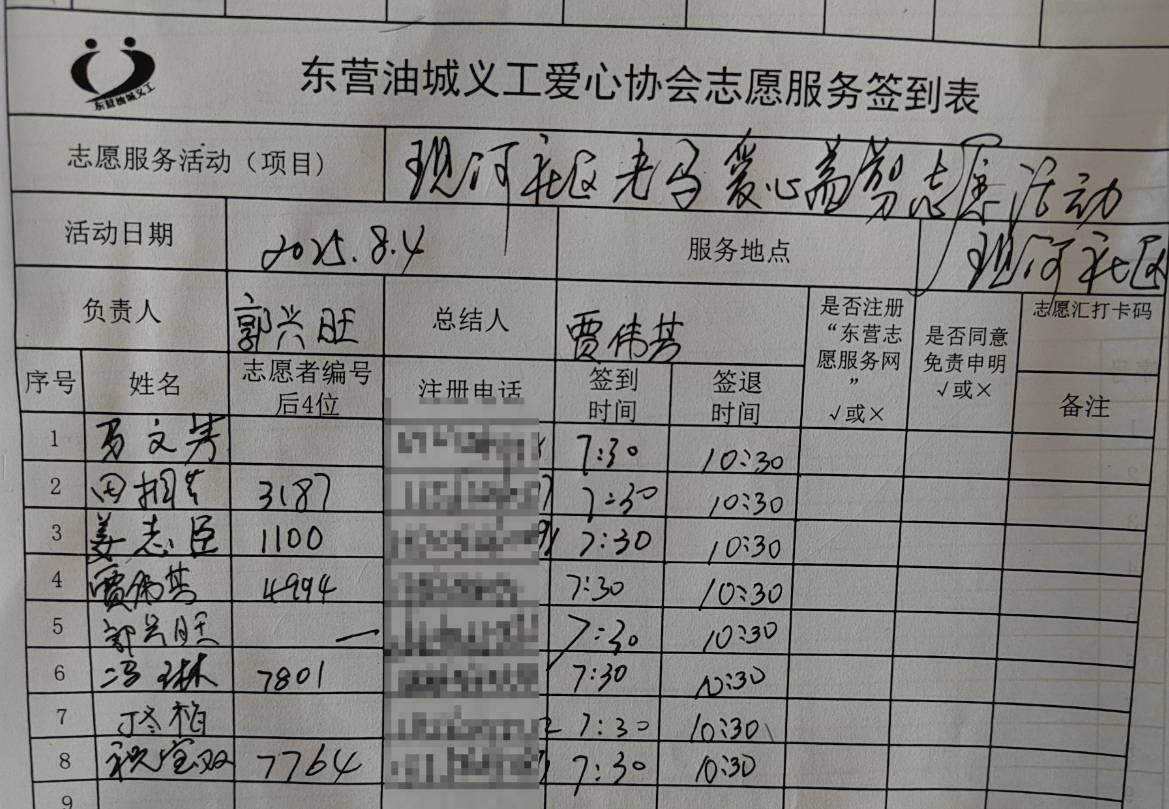 东营油城义工
东营油城义工爱心协会志愿服务签到表
志愿服务活动（项目） 现河社区老马爱心磨剪志愿活动
活动日期 2025.8.4 服务地点 现河社区
负责人 郭兴旺 总结人 贾伟芳 是否注册“东营志愿服务网” √或× 是否同意免责申明 √或× 志愿汇打卡码
序号 姓名 志愿者编号后4位 注册电话 签到时间 签退时间 备注
1 马文 7:30 10:30
2 田 3187 7:30 10:30
3 姜志臣 1100 7:30 10:30
4 贾伟芳 4994 7:30 10:30
5 郭兴旺 — 7:30 10:30
6 冯琳 7801 7:30 10:30
7 丁冬柏 7:30 10:30
8 宝双 7764 7:30 10:30
9